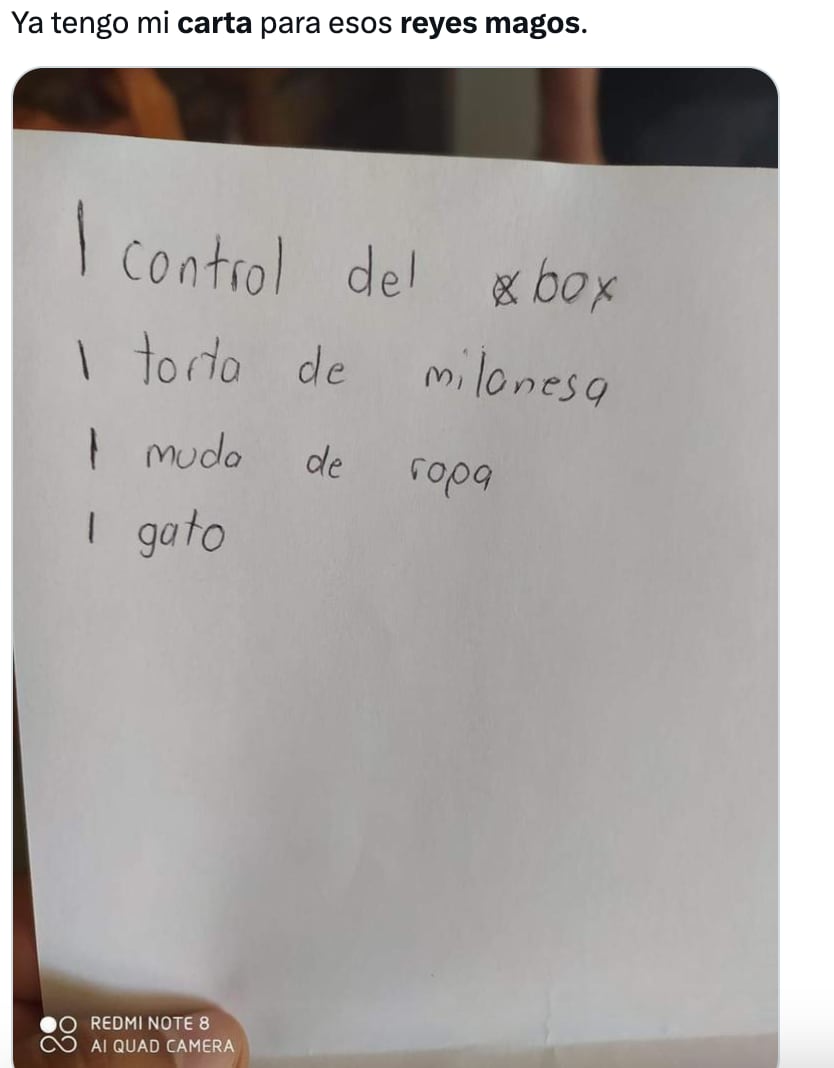 Ya tengo mi carta para esos reyes magos.
1 control del xbox
1 torta de milanesa
1 muda de ropa
1 gato
REDMI NOTE 8
AI QUAD CAMERA